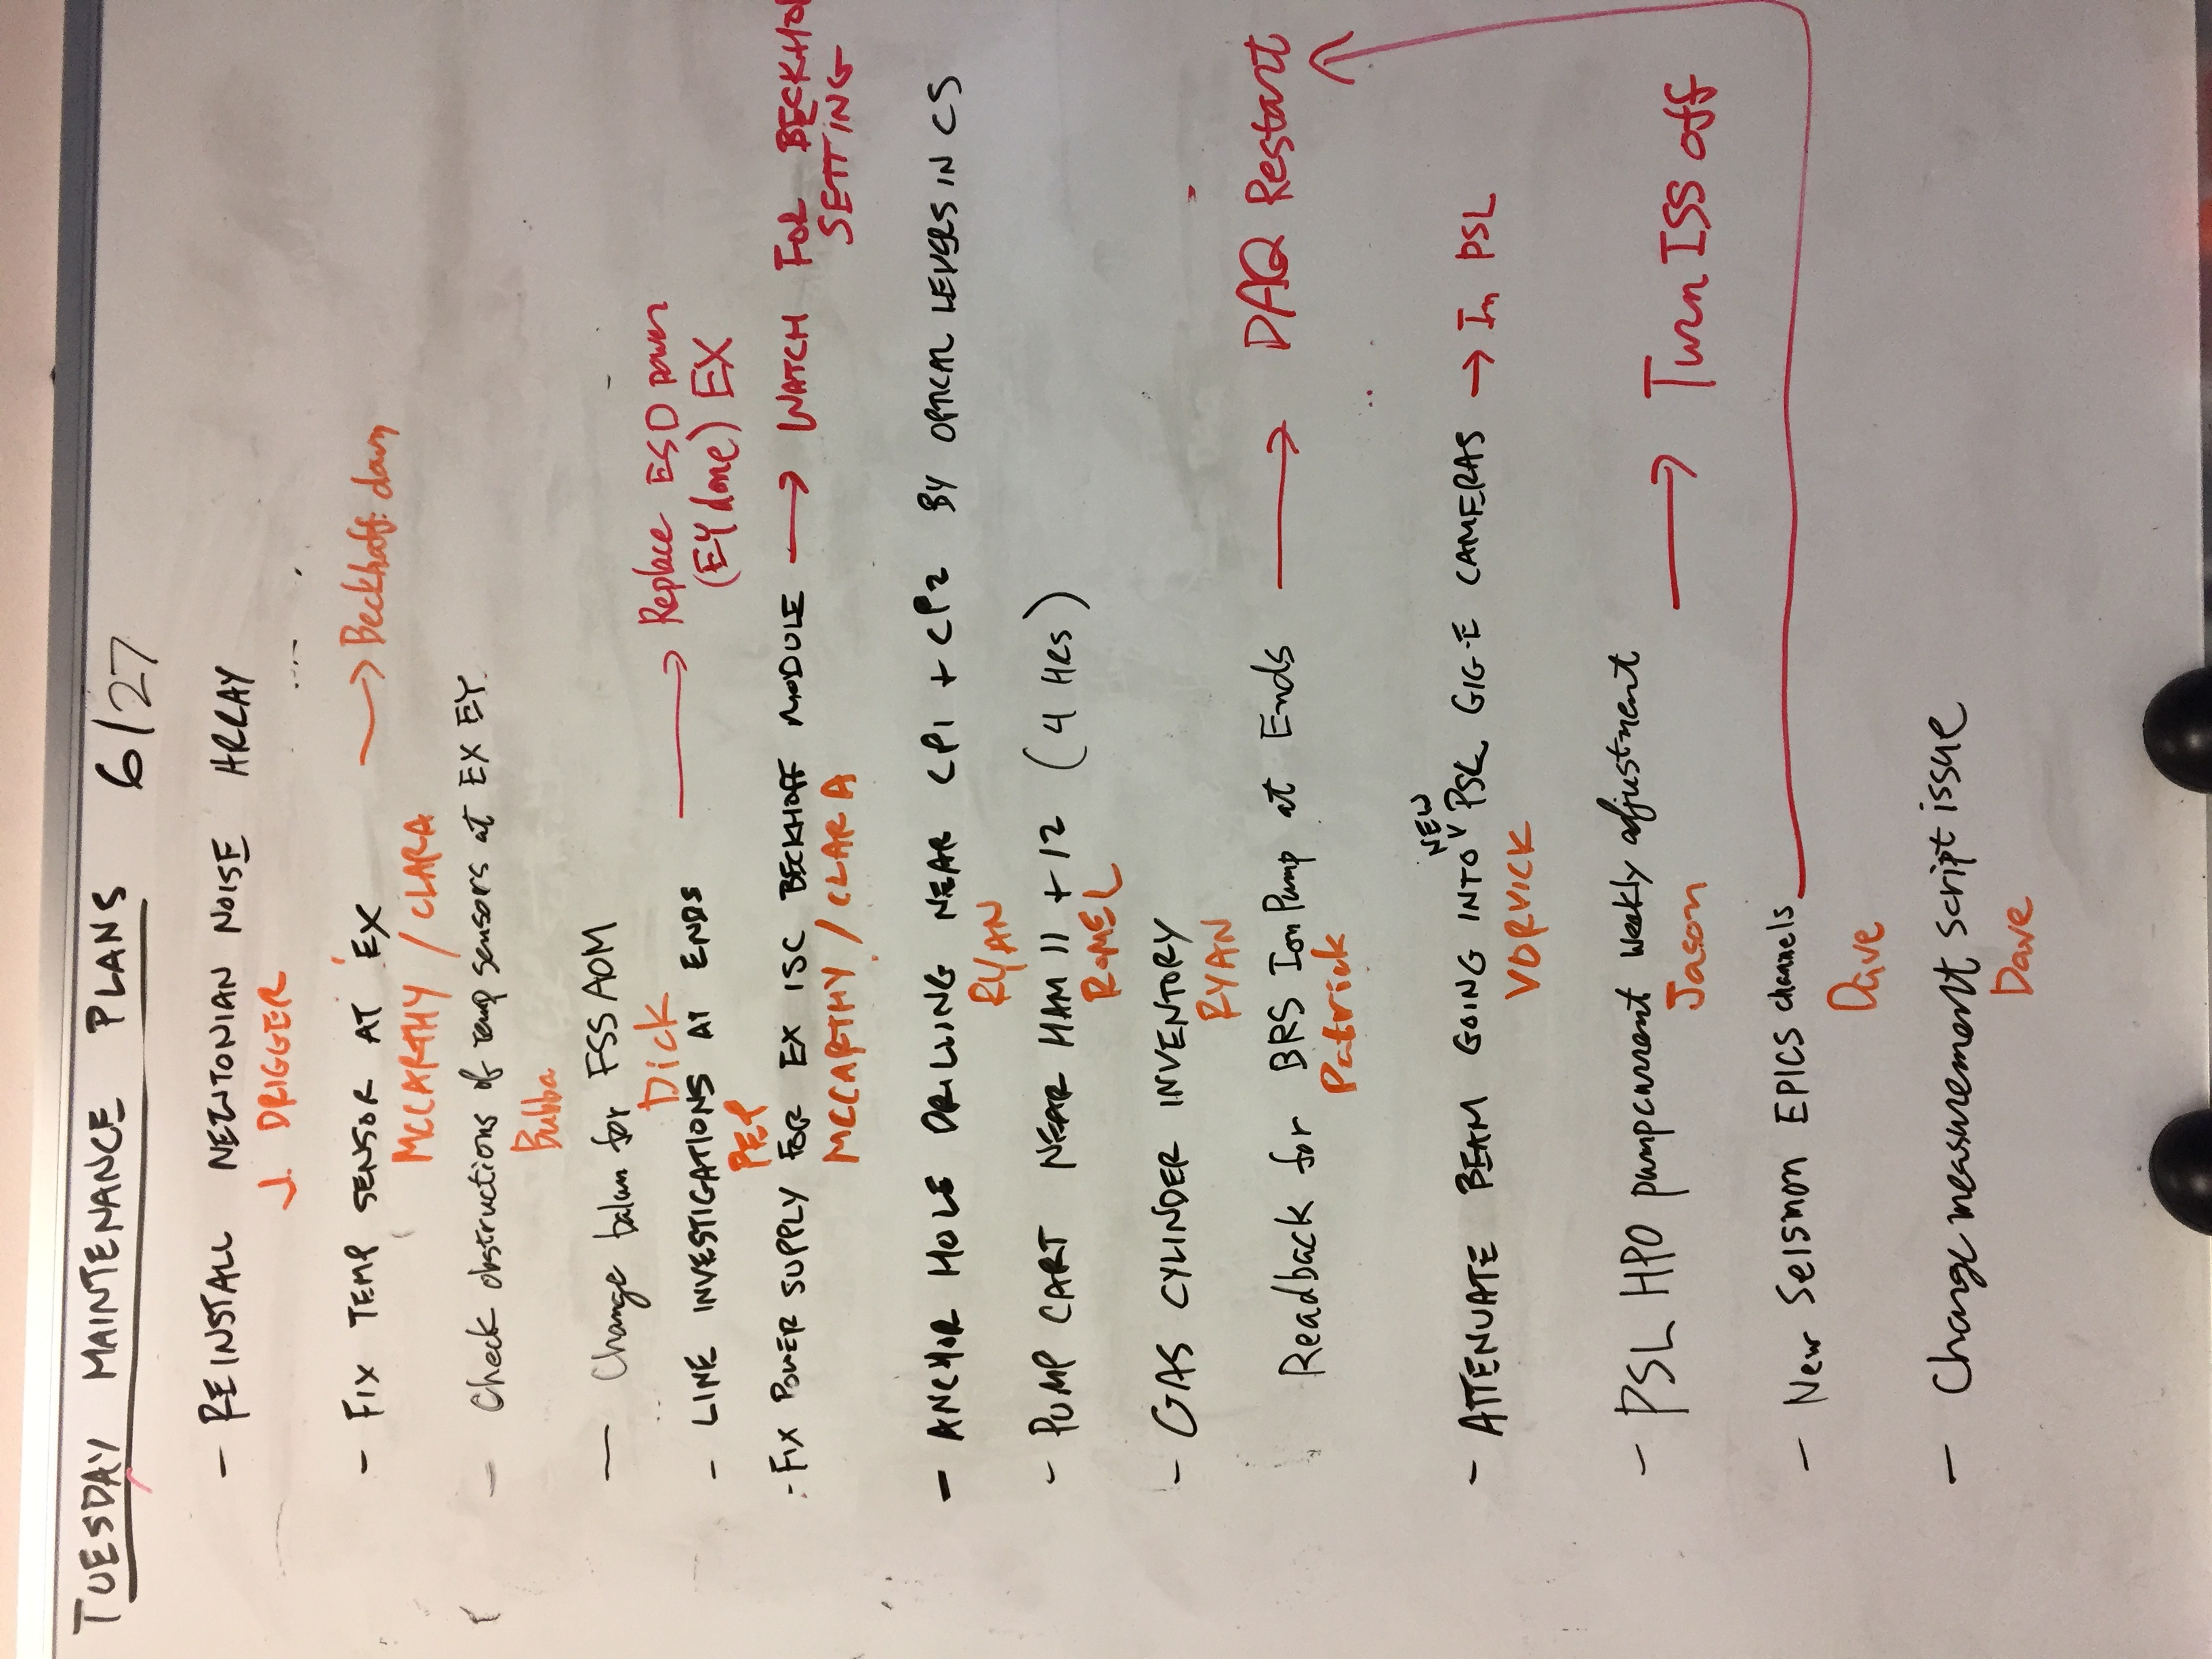 TUESDAY MAINTENANCE PLANS 6/27
- REINSTALL NEWTONIAN NOISE ARRAY
J. DRIGGER
- FIX TEMP SENSOR AT EX → Beckhoff: dam
MCCARTHY / CLARA
- Check obstructions of temp sensors at EX EY
Bubba
- Change balun for FSS AOM
Dick
- LINE INVESTIGATIONS AT ENDS → Replace ESD power
(EY done) EX
- FIX POWER SUPPLY FOR EX ISC BECKHOFF MODULE → WATCH FOR BECKHOFF
SETTING
MCCARTHY / CLARA
- ANCHOR HOLE DRILLING NEAR CP1 + CP2 BY OPTICAL LEVERS IN CS
RYAN
- PUMP CART NEAR HAM 11 + 12 (4 HRS)
ROMEL
- GAS CYLINDER INVENTORY
RYAN
Readback for BRS Ion Pump at Ends → DAQ Restart
Patrick
- ATTENUATE BEAM GOING INTO NEW PSL GIG-E CAMERAS → In PSL
VORVICK
- PSL HPO pump current weekly adjustment → Turn ISS off
Jason
- New Seismon EPICS channels
Dave
- Change measurement script issue
Dave